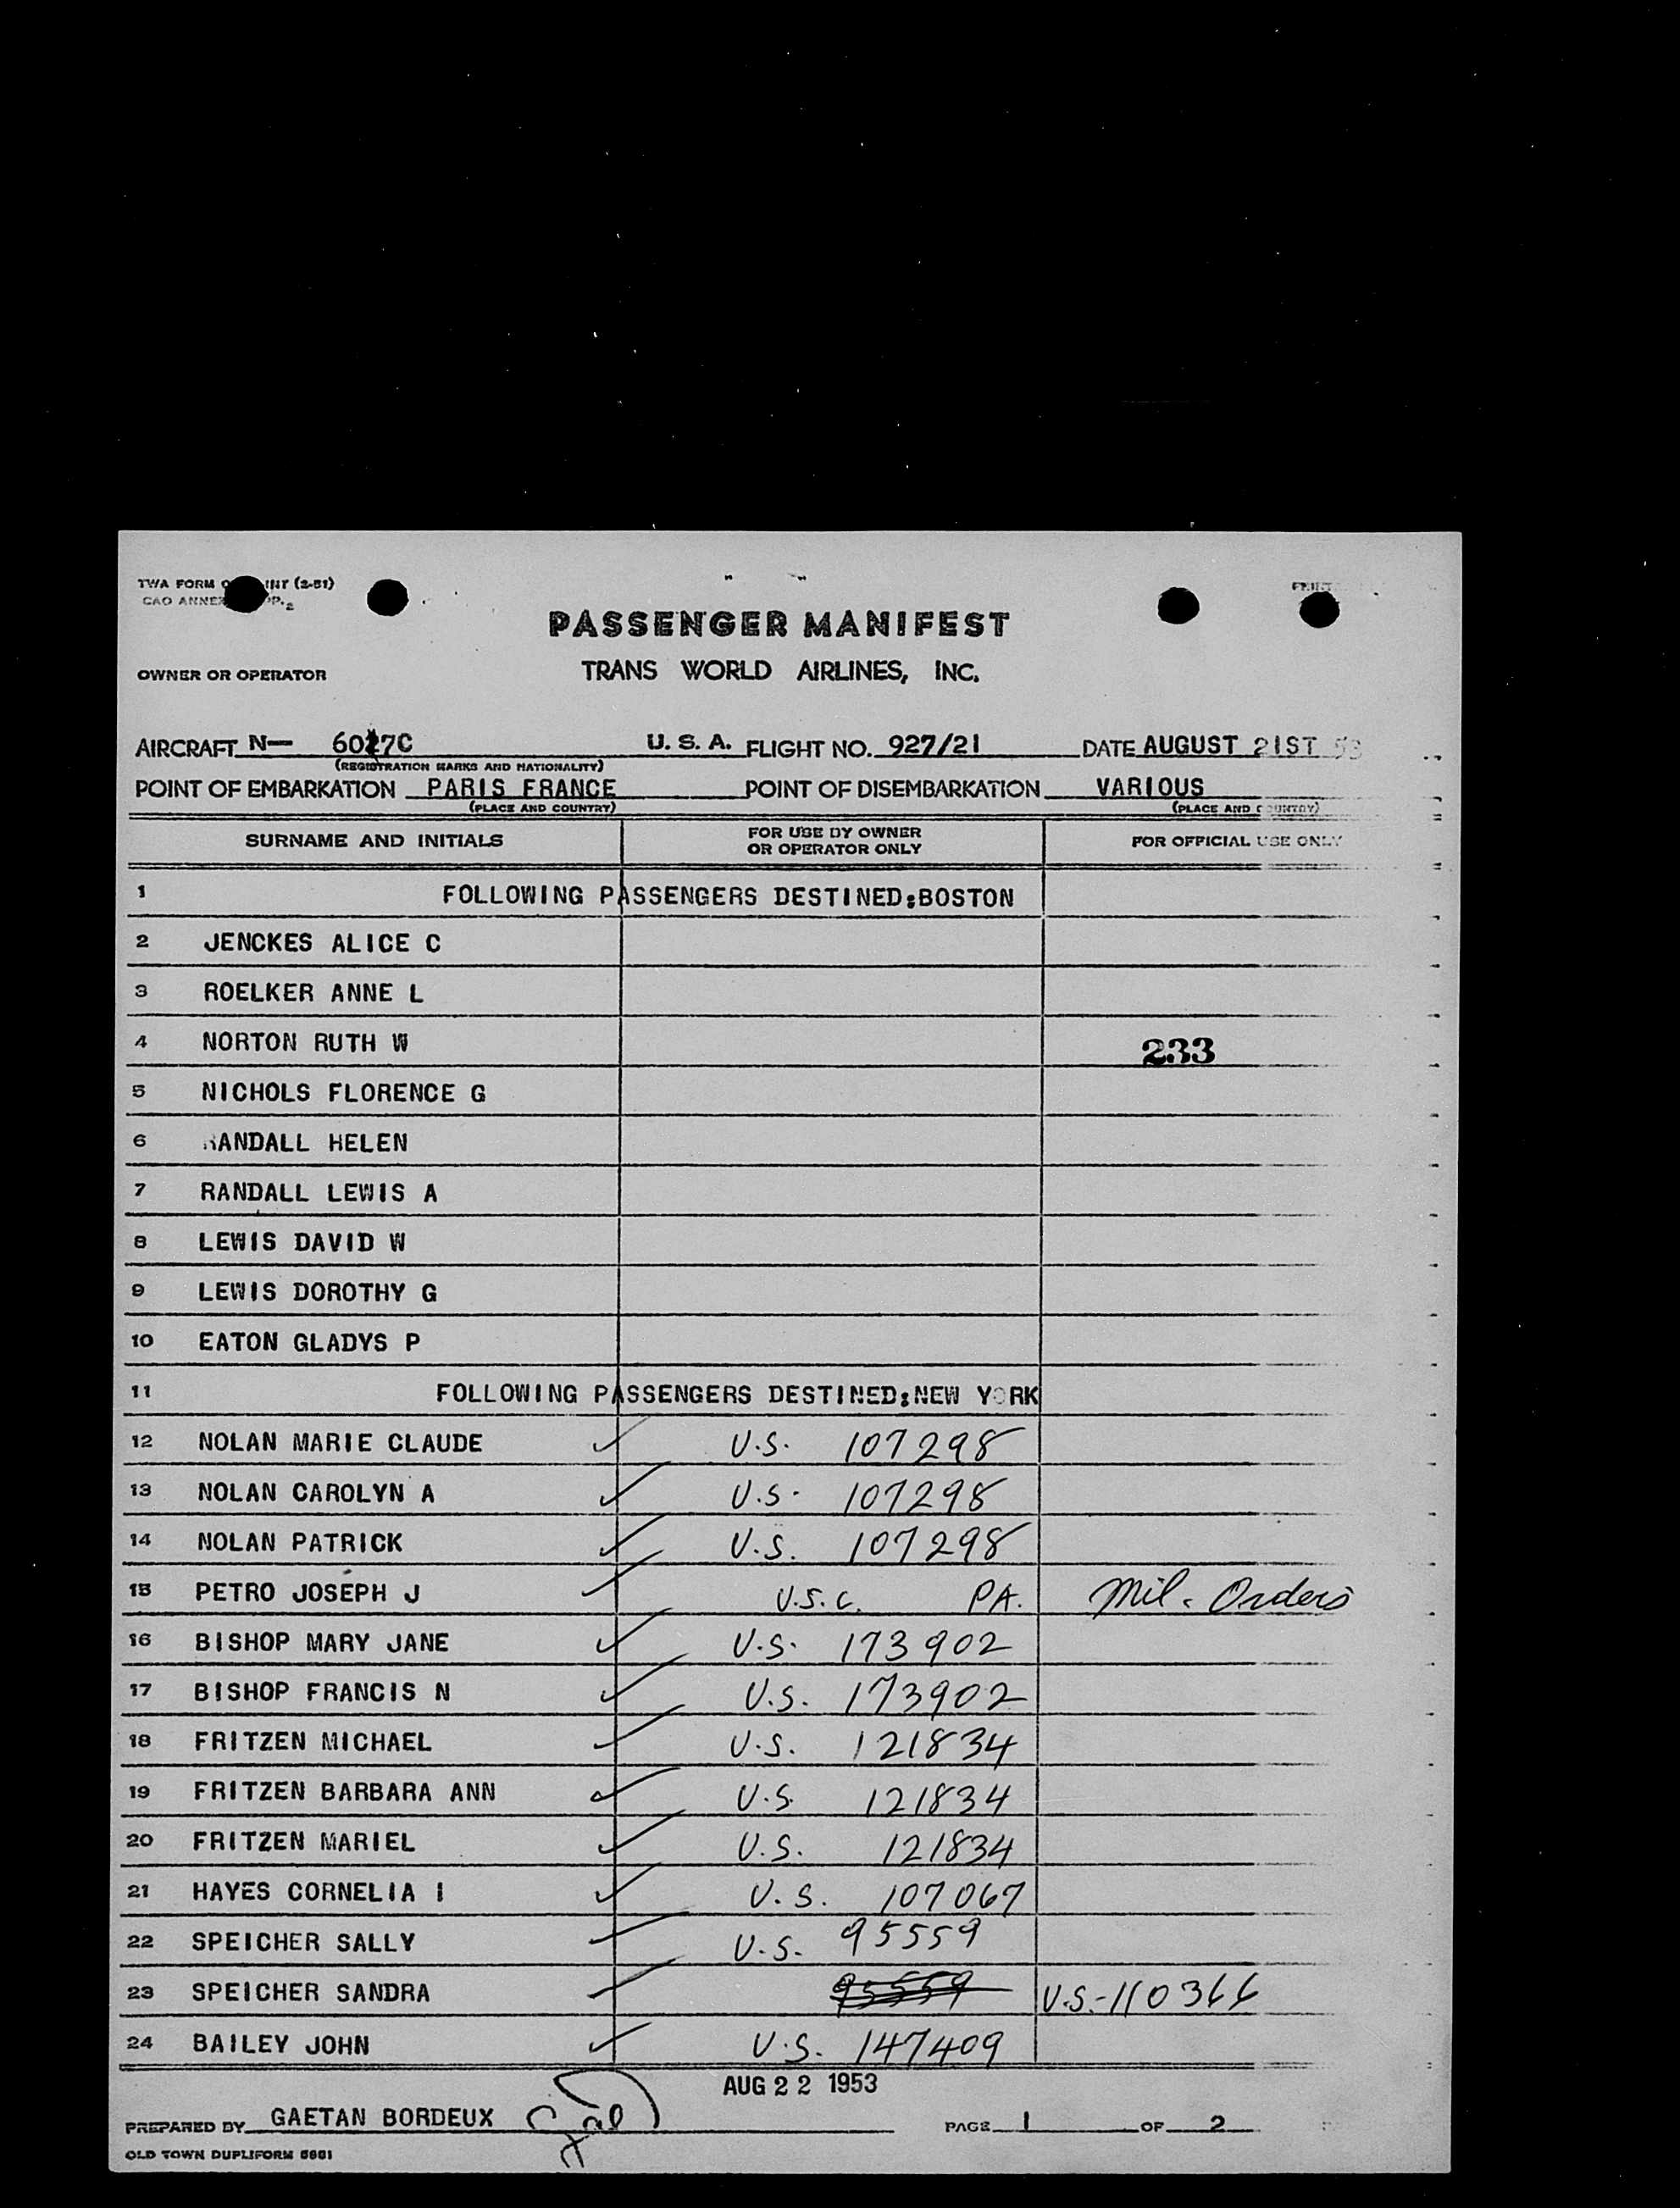 TWA FORM INT (2-51)
CAO ANNEX
PASSENGER MANIFEST
OWNER OR OPERATOR TRANS WORLD AIRLINES, INC.
AIRCRAFT N— 6017C U. S. A. FLIGHT NO. 927/21 DATE AUGUST 21ST 53
(REGISTRATION MARKS AND NATIONALITY)
POINT OF EMBARKATION PARIS FRANCE POINT OF DISEMBARKATION VARIOUS
(PLACE AND COUNTRY) (PLACE AND COUNTRY)
SURNAME AND INITIALS FOR USE BY OWNER OR OPERATOR ONLY FOR OFFICIAL USE ONLY
1 FOLLOWING PASSENGERS DESTINED:BOSTON
2 JENCKES ALICE C
3 ROELKER ANNE L
4 NORTON RUTH W 233
5 NICHOLS FLORENCE G
6 RANDALL HELEN
7 RANDALL LEWIS A
8 LEWIS DAVID W
9 LEWIS DOROTHY G
10 EATON GLADYS P
11 FOLLOWING PASSENGERS DESTINED:NEW YORK
12 NOLAN MARIE CLAUDE ✓ U.S. 107298
13 NOLAN CAROLYN A ✓ U.S. 107298
14 NOLAN PATRICK ✓ U.S. 107298
15 PETRO JOSEPH J ✓ U.S.C. PA. Mil. Orders
16 BISHOP MARY JANE ✓ U.S. 173902
17 BISHOP FRANCIS N ✓ U.S. 173902
18 FRITZEN MICHAEL ✓ U.S. 121834
19 FRITZEN BARBARA ANN ✓ U.S. 121834
20 FRITZEN MARIEL ✓ U.S. 121834
21 HAYES CORNELIA I ✓ U.S. 107067
22 SPEICHER SALLY ✓ U.S. 95559
23 SPEICHER SANDRA ✓ 95559 U.S.-110366
24 BAILEY JOHN ✓ U.S. 147409
AUG 22 1953
PREPARED BY GAETAN BORDEUX PAGE 1 OF 2
OLD TOWN DUPLIFORM 5651